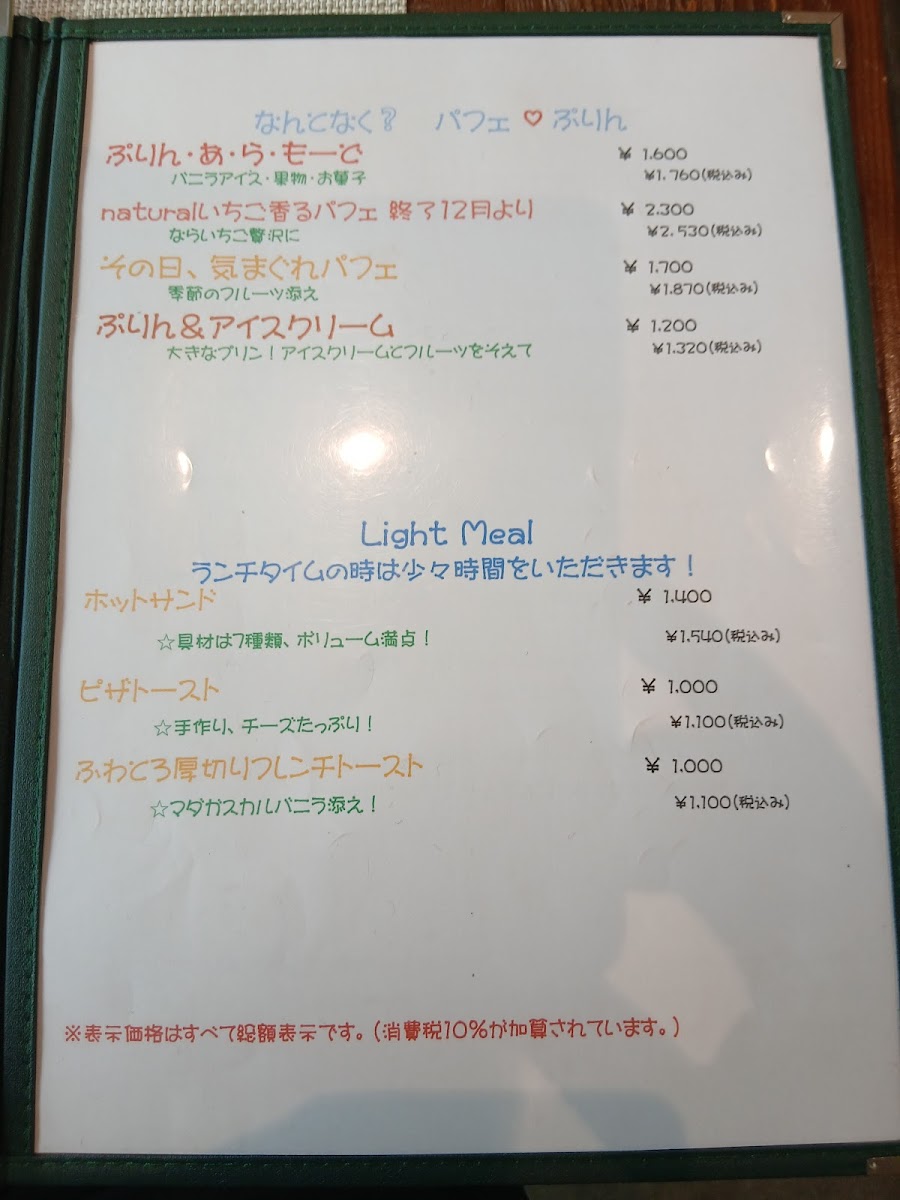 なんとなく? パフェ♡ぷりん
ぷりん・あ・ら・もーど ¥ 1.600
バニラアイス・果物・お菓子 ¥1.760(税込み)
naturalいちご香るパフェ 終了12月より ¥ 2.300
ならいちご贅沢に ¥2.530(税込み)
その日、気まぐれパフェ ¥ 1.700
季節のフルーツ添え ¥1.870(税込み)
ぷりん&アイスクリーム ¥ 1.200
大きなプリン!アイスクリームとフルーツをそえて ¥1.320(税込み)
Light Meal
ランチタイムの時は少々時間をいただきます!
ホットサンド ¥ 1.400
☆具材は7種類、ボリューム満点! ¥1.540(税込み)
ピザトースト ¥ 1.000
☆手作り、チーズたっぷり! ¥1.100(税込み)
ふわとろ厚切りフレンチトースト ¥ 1.000
☆マダガスカルバニラ添え! ¥1.100(税込み)
※表示価格はすべて総額表示です。(消費税10%が加算されています。)